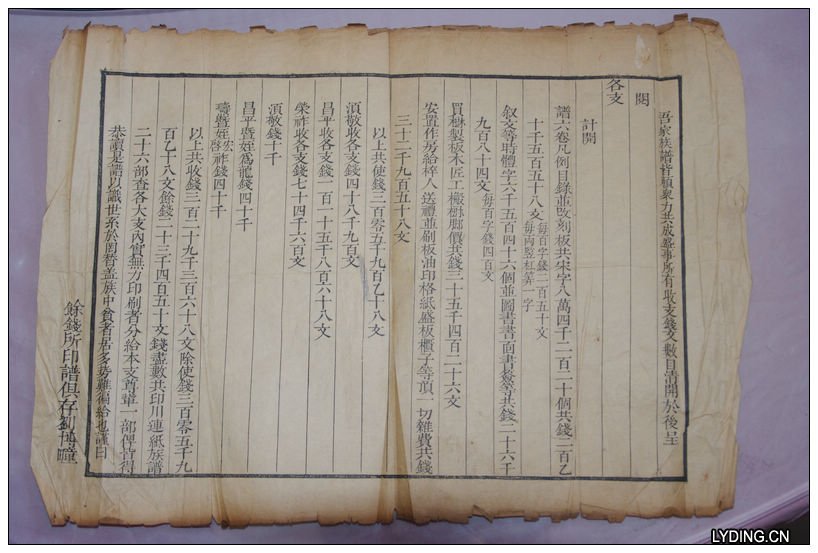 吾家族譜皆賴眾力共成盛事所有收支錢文數目清開於後呈
閱
各支
計開
譜六卷凡例目錄並改刻板共宋字八萬四千二百二十個共錢二百乙
十千五百五十八文每百字錢二百五十文
每兩竪杠筭一字
叙文等時體字六千五百四十六個並圖書書面書簽等共錢二十六千
九百八十四文每百字錢四百文
買棶製板木匠工搬樹脚價共錢三十五千四百二十六文
安置作房給梓人送禮並刷板油印格紙盛板櫃子等項一切雜費共錢
三十二千九百五十八文
以上共使錢三百零五千九百乙十八文
滇敬收各支錢四十八千九百文
昌平收各支錢一百一十五千八百六十八文
榮祚收各支錢七十四千六百文
滇敬錢十千
昌平暨姪為龍錢四十千
暨姪宏祚錢四十千
啓
以上共收錢三百二十九千三百六十八文除使錢三百零五千九
百乙十八文餘錢二十三千四百五十文錢盡數共印川連紙族譜
二十六部查各大支內實無力印刷者分給本支尊輩一部俾皆得
恭讀是譜以識世系於罔替蓋族中貧者居多勢難徧給也謹曰
餘錢所印譜俱存劉
LYDING.CN